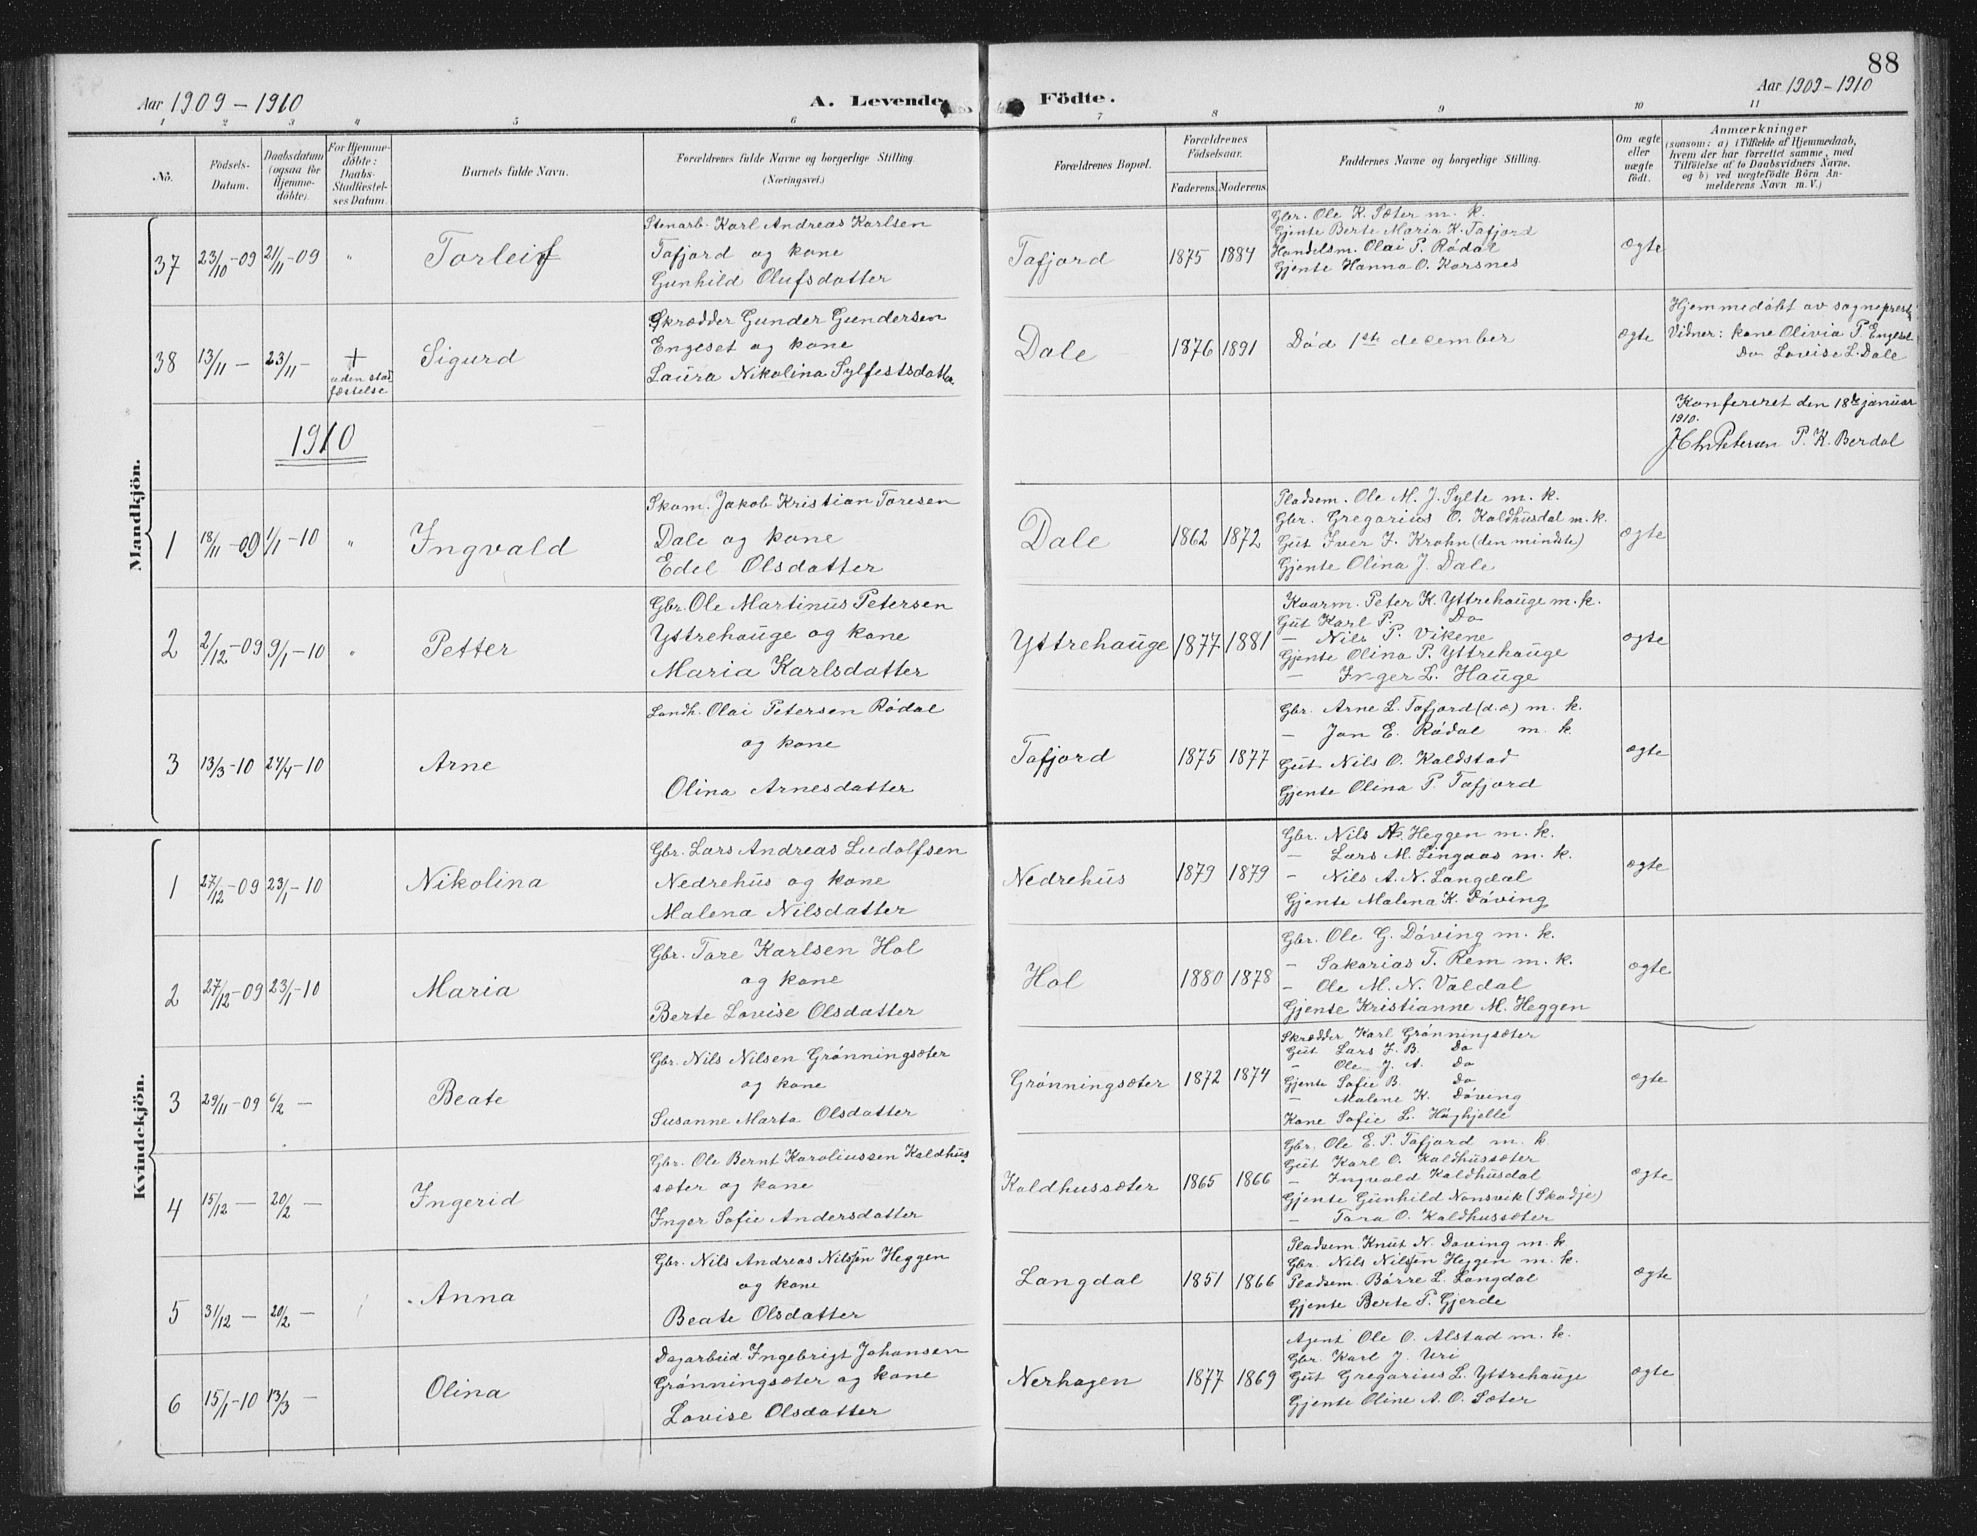 88
Aar 1909 – 1910
A. Levende
Födte.
Aar 1909 – 1910
1 2 3 4 5 6 7 8 9 10 11
No.
Födsels-Datum.
Daabsdatum (ogsaa for Hjemme-döbte).
For Hjemme-döbte: Daabs-Stadfæstel-ses Datum.
Barnets fulde Navn.
Forældrenes fulde Navne og borgerlige Stilling.
(Næringsvei.)
Forældrenes Bopæl.
Forældrenes Födselsaar.
Faderens. Moderens.
Faddernes Navne og borgerlige Stilling.
Om ægte eller uægte födt.
Anmærkninger
(saasom: a) i Tilfælde af Hjemmedaab, hvem der har forrettet samme, med Tilföielse af to Daabsvidners Navne, og b) ved uægtefödte Börn An-melderens Navn m. V.)
Mandkjön.
37 23/10 –09 21/11 –09 " Torleif
Stenarb. Karl Andreas Karlsen
Tafjord og kone
Gunhild Olufsdatter
Tafjord 1875 1884
Gbr. Ole K. Sæter m. k.
Gjente Berte Maria K. Tafjord
Handelsm. Olai P. Rødal
Gjente Hanna O. Korsnes
ægte
38 13/11 – 23/11 – + uden stadfæstelse Sigurd
Skrædder Gunder Gundersen
Engeset og kone
Laura Nikolina Sylfestsdatter
Dale 1876 1891
Død 1ste december
ægte
Hjemmedøbt av sogneprest
Vidner: kone Olivia P. Engeset
Do Lovise L. Dale
1910
Konfereret den 18de januar
1910.
J Chr Petersen P. K. Berdal
1 18/11 –09 1/1 –10 " Ingvald
Skom. Jakob Kristian Toresen
Dale og kone
Edel Olsdatter
Dale 1862 1872
Pladsem. Ole M. J. Sylte m. k.
Gbr. Gregorius O. Kaldhusdal m. k.
Gut Iver J. Krohn (den mindste)
Gjente Olina J. Dale
ægte
2 2/12 –09 9/1 –10 " Petter
Gbr. Ole Martinus Petersen
Yttrehauge og kone
Maria Karlsdatter
Yttrehauge 1877 1881
Kvarm. Peter K. Yttrehauge m. k.
Gut Karl P. Do
– Nils P. Vikene
Gjente Olina P. Yttrehauge
– Inger L. Hauge
ægte
3 13/3 –10 24/4 –10 Arne
Landh. Olai Petersen Rødal
og kone
Olina Arnesdatter
Tafjord 1875 1877
Gbr. Arne L. Tafjord (d.æ) m. k.
– Jon E. Rødal m. k.
Gut Nils O. Kaldstad
Gjente Olina P. Tafjord
ægte
Kvindekjön.
1 27/12 –09 23/1 –10 Nikolina
Gbr. Lars Andreas Ludolfsen
Nedrehus og kone
Malena Nilsdatter
Nedrehus 1879 1879
Gbr. Nils A. Heggen m. k.
– Lars M. Lingaas m. k.
– Nils A. N. Langdal
Gjente Malena K. Døving
ægte
2 27/12 –09 23/1 –10 Maria
Gbr. Tore Karlsen Hol
og kone
Berte Lovise Olsdatter
Hol 1880 1878
Gbr. Ole G. Døving m. k.
– Sakarias T. Rem m. k.
– Ole M. N. Valdal
Gjente Kristianne M. Heggen
ægte
3 29/11 –09 6/2 – Beate
Gbr. Nils Nilsen Grønningsæter
og kone
Susanne Marta Olsdatter
Grønningsæter 1872 1874
Skrædder Karl Grønningsæter
Gut Lars J. B. Do
– Ole J. A. Do
Gjente Sofie B. Do
– Malene K. Døving
Kone Sofie L. Høghjelle
ægte
4 15/12 – 20/2 – Ingerid
Gbr. Ole Bernt Karoliussen Kaldhus
sæter og kone
Inger Sofie Andersdatter
Kaldhussæter 1865 1866
Gbr. Ole E. P. Tafjord m. k
Gut Karl O. Kaldhussæter
– Ingvald Kaldhusdal
Gjente Gunhild Nonsvik (Skodje)
– Tora O. Kaldhussæter
ægte
5 31/12 – 20/2 – Anna
Gbr. Nils Andreas Nilsen Heggen
og kone
Beate Olsdatter
Langdal 1851 1866
Pladsem. Knut N. Døving m. k
Gbr. Nils Nilsen Heggen m. k.
Pladsem. Børre L. Langdal
Gjente Berte P. Gjerde
ægte
6 15/1 –10 13/3 – Olina
Dagarbeid Ingebrigt Johansen
Grønningsæter og kone
Lovise Olsdatter
Nerhagen 1877 1869
Agent Ole O. Alstad m. k.
Gbr. Karl J. Uri
Gut Gregorius L. Yttrehauge
Gjente Oline A. O. Sæter
ægte